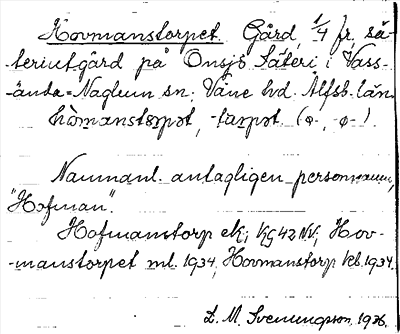 Hovmanstorpet Gård, 1/4 fr. sä-
teriutgård på Onsjö Säteri i Vass-
ända-Naglum sn; Väne hd. Älfsb. län
håmanstorpət, -tarpət. (ə-, -ə-).
Namnanl. antagligen personnamn,
"Hofman".
Hofmanstorp ek; KG42 NV, Hov-
manstorpet ml. 1934, Hovmanstorp kb. 1934.
L. M. Svenungsson, 1936.